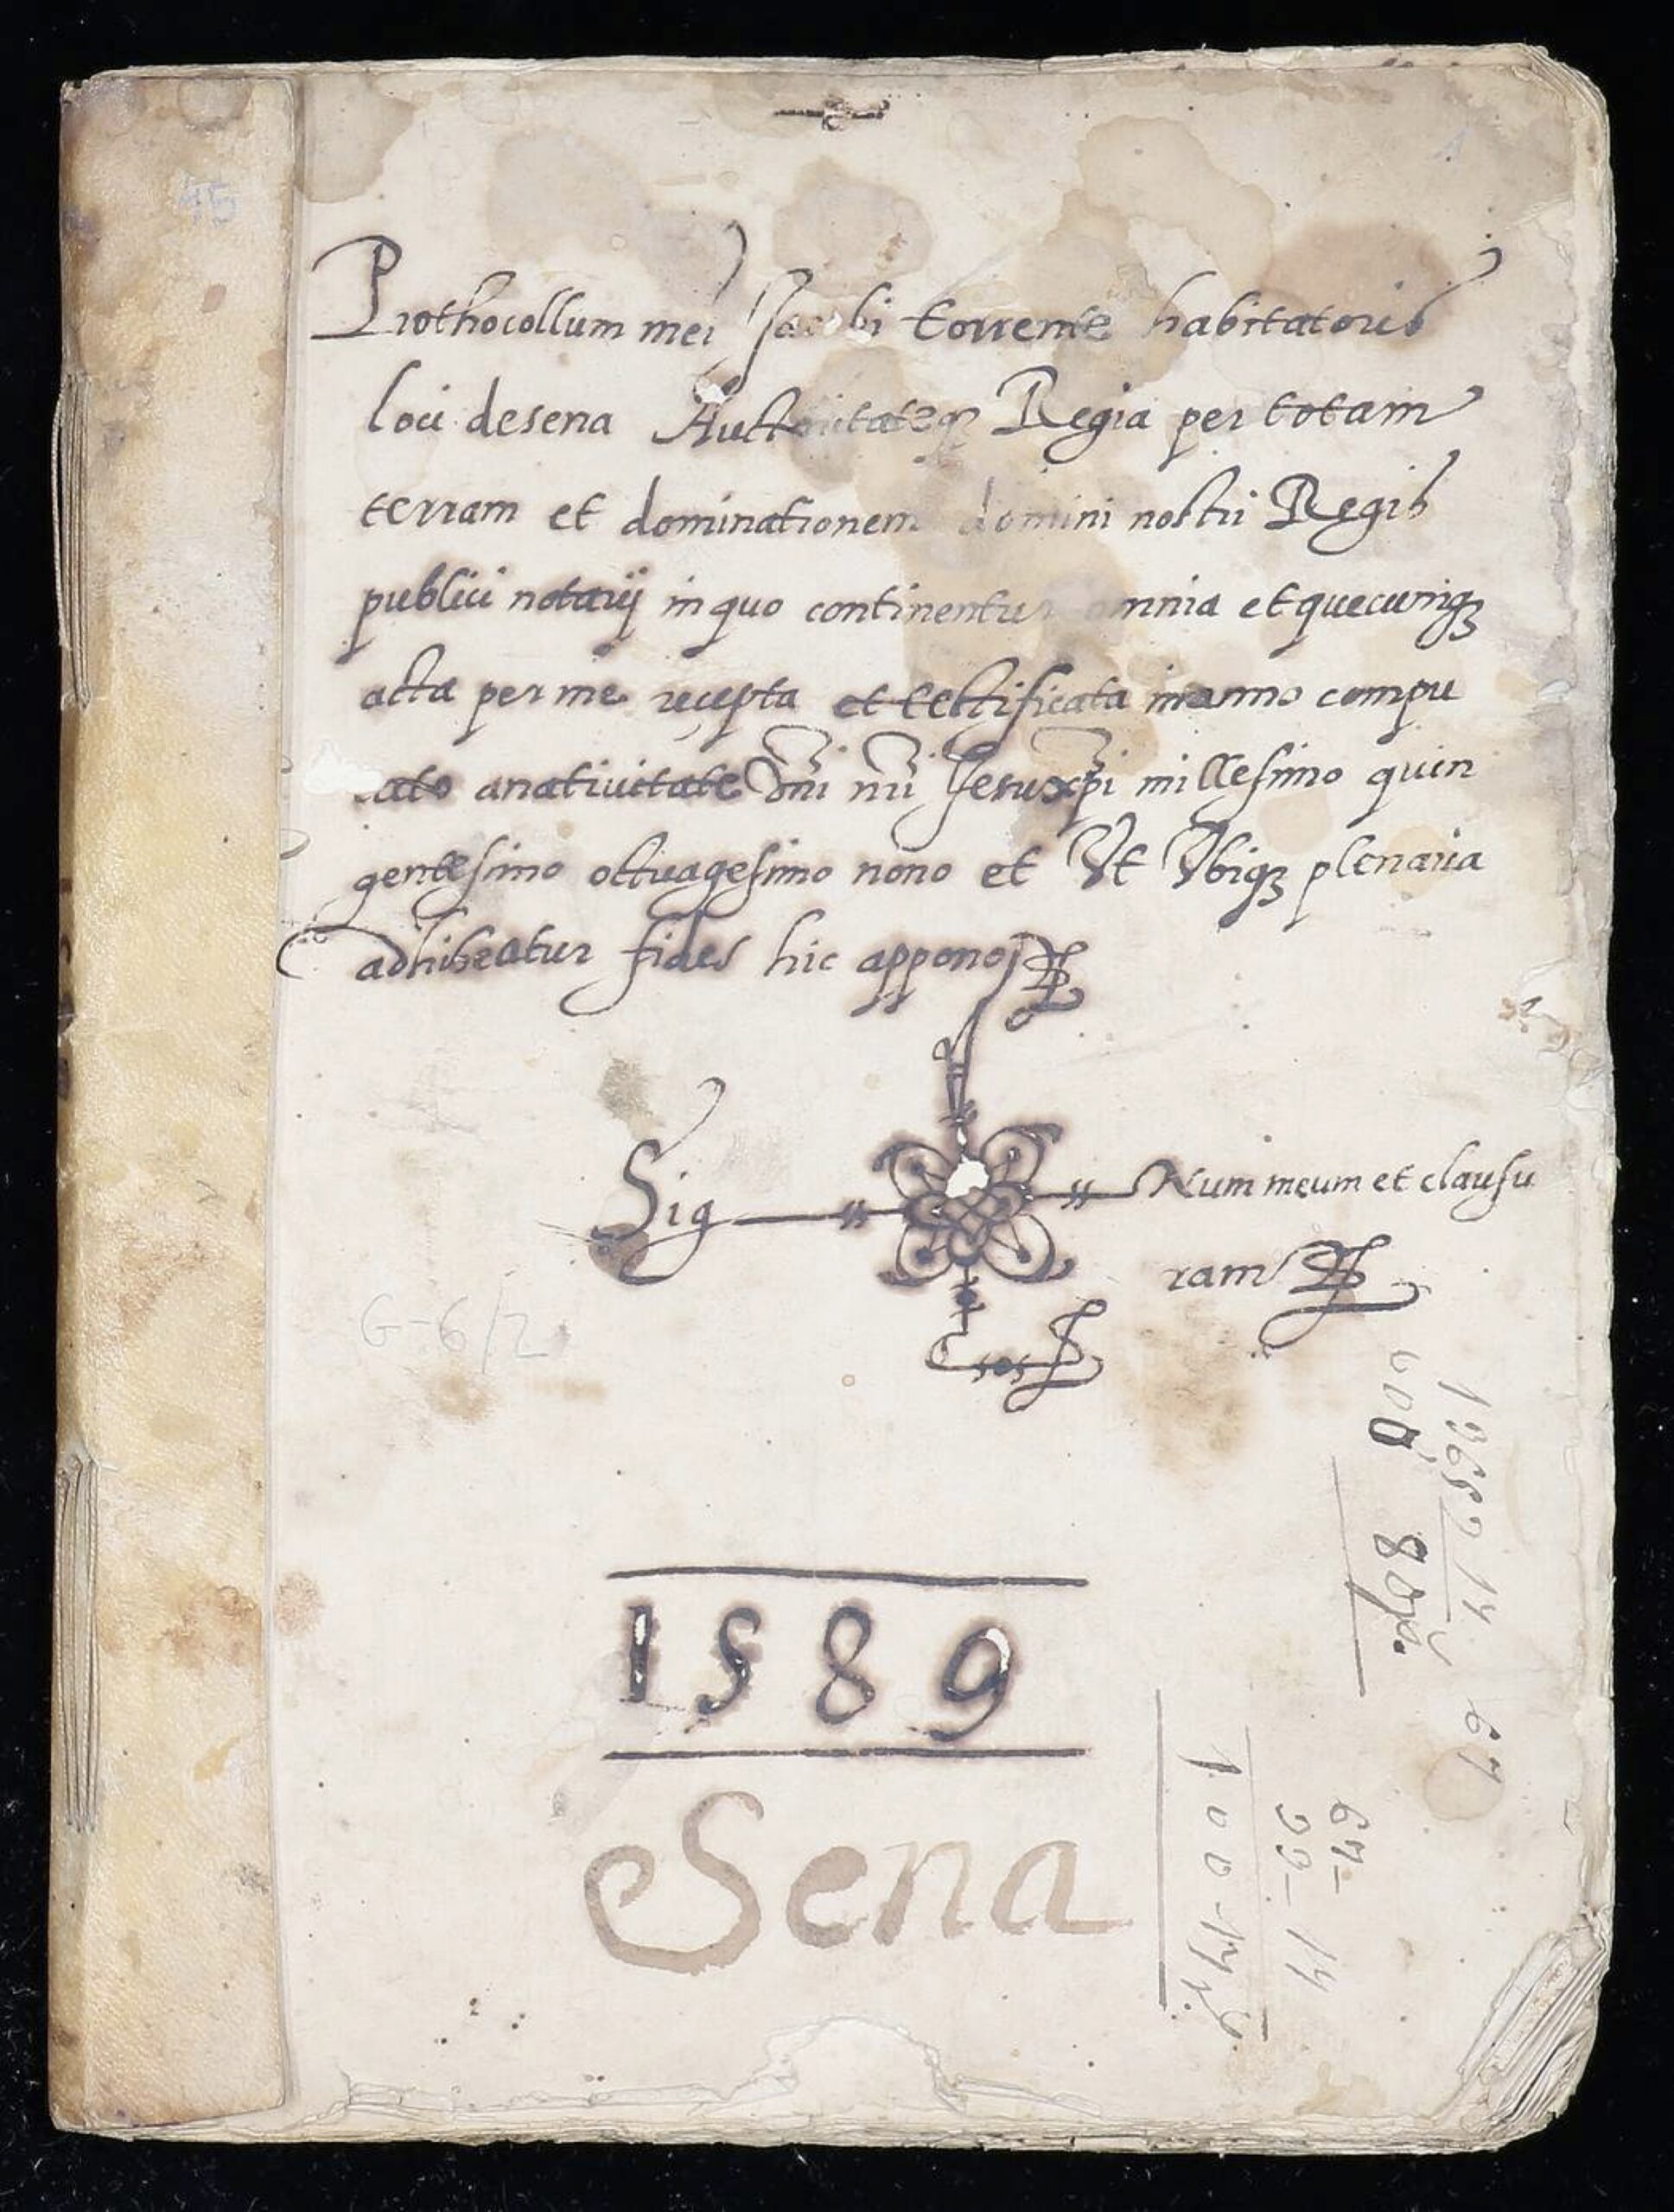 Prothocollum mei Jacobi torrente habitatoris
loci desena Auctoritateq₃ Regia per totam
terram et dominationem domini nostri Regis
publici notarij inquo continentur omnia et quecumq₃
acta per me recepta et testificata inanno compu
tato anativitate Dni nri Jesuxpi millesimo quin
gentesimo octuagesimo nono et Vt Vbiq₃ plenaria
adhibeatur fides hic appono
Sig Num meum et clausu
ram
G-6/2
1589
Sena